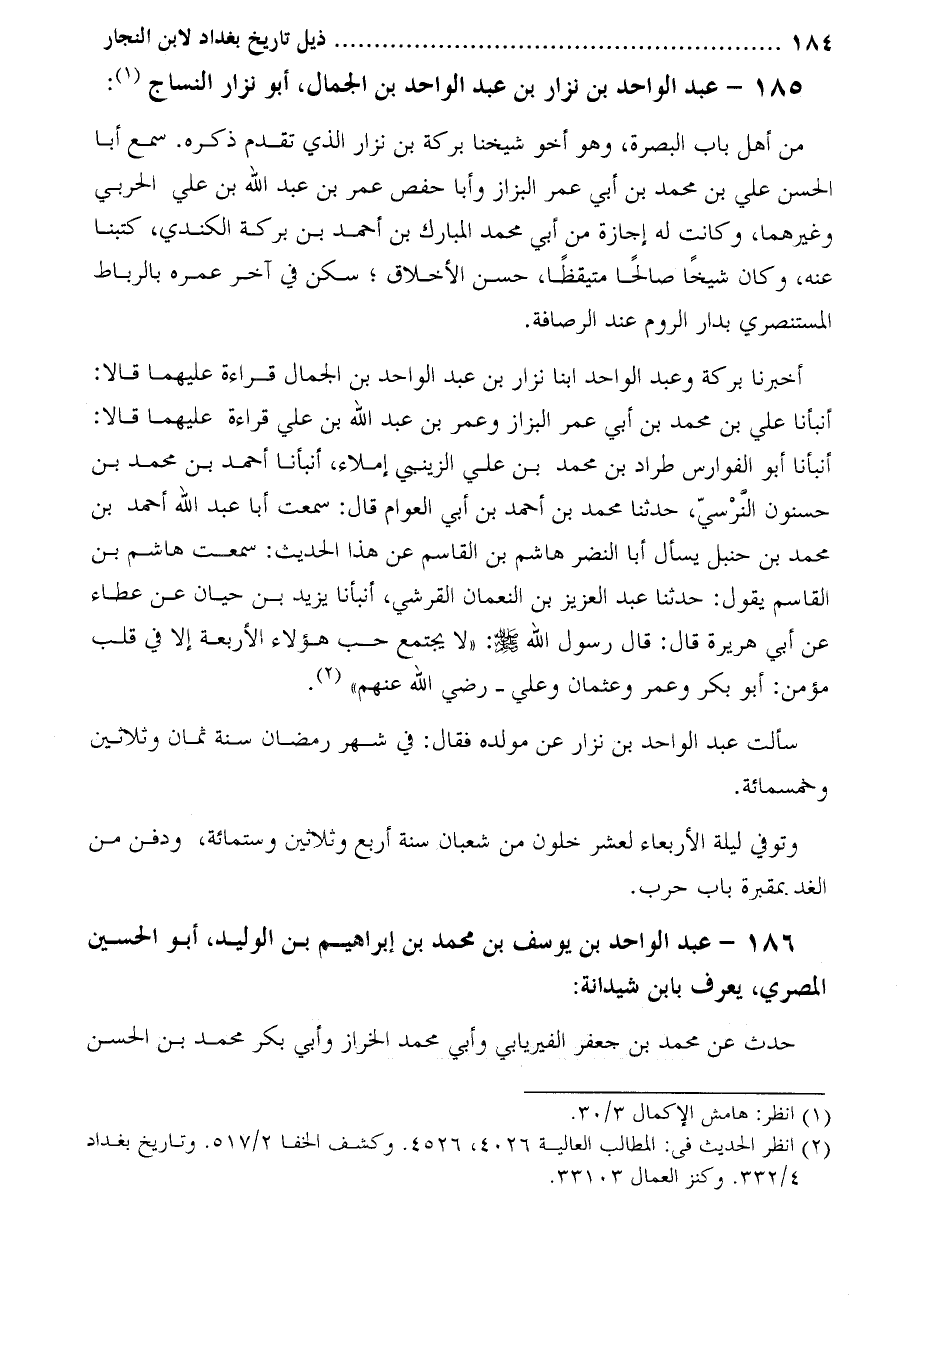 ١٨٤ ........................................................ ذيل تاريخ بغداد لابن النجار
١٨٥ – عبد الواحد بن نزار بن عبد الواحد بن الجمال، أبو نزار النساج (١):
من أهل باب البصرة، وهو أخو شيخنا بركة بن نزار الذي تقدم ذكره. سمع أبا
الحسن علي بن محمد بن أبي عمر البزاز وأبا حفص عمر بن عبد الله بن علي الحربي
وغيرهما، وكانت له إجازة من أبي محمد المبارك بن أحمد بن بركة الكندي، كتبنا
عنه، وكان شيخًا صالحًا متيقظًا، حسن الأخلاق ؛ سكن في آخر عمره بالرباط
المستنصري بدار الروم عند الرصافة.
أخبرنا بركة وعبد الواحد ابنا نزار بن عبد الواحد بن الجمال قراءة عليهما قالا:
أنبأنا علي بن محمد بن أبي عمر البزاز وعمر بن عبد الله بن علي قراءة عليهما قالا:
أنبأنا أبو الفوارس طراد بن محمد بن علي الزينبي إملاء، أنبأنا أحمد بن محمد بن
حسنون النَّرْسيّ، حدثنا محمد بن أحمد بن أبي العوام قال: سمعت أبا عبد الله أحمد بن
محمد بن حنبل يسأل أبا النضر هاشم بن القاسم عن هذا الحديث: سمعت هاشم بن
القاسم يقول: حدثنا عبد العزيز بن النعمان القرشي، أنبأنا يزيد بن حيان عن عطاء
عن أبي هريرة قال: قال رسول الله ﷺ: «لا يجتمع حب هؤلاء الأربعة إلا في قلب
مؤمن: أبو بكر وعمر وعثمان وعلي ـ رضي الله عنهم» (٢).
سألت عبد الواحد بن نزار عن مولده فقال: في شهر رمضان سنة ثمان وثلاثين
وخمسمائة.
وتوفي ليلة الأربعاء لعشر خلون من شعبان سنة أربع وثلاثين وستمائة، ودفن من
الغد بمقبرة باب حرب.
١٨٦ – عبد الواحد بن يوسف بن محمد بن إبراهيم بن الوليد، أبو الحسين
المصري، يعرف بابن شيدانة:
حدث عن محمد بن جعفر الفيريابي وأبي محمد الخراز وأبي بكر محمد بن الحسن
(١) انظر: هامش الإكمال ٣٠/٣.
(٢) انظر الحديث فى: المطالب العالية ٤٠٢٦، ٤٥٢٦. وكشف الخفا ٥١٧/٢. وتاريخ بغداد
٣٣٢/٤. وكنز العمال ٣٣١٠٣.